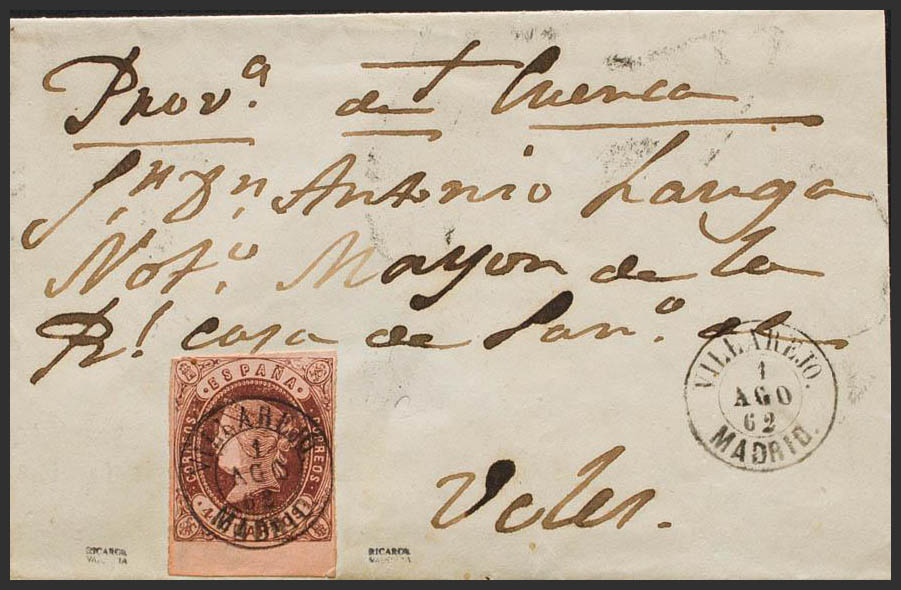 Provª. de Cuenca
Sr. Dn. Antonio Langa
Notº. Mayor de la
Rl. casa de de
Ucles.
VILLAREJO.
1
AGO
62
MADRID.
ESPAÑA
CORREOS CORREOS
VILLAREJO
1
AGO
62
MADRID
RICARDR.
VALENCIA
RICARDR.
VALENCIA